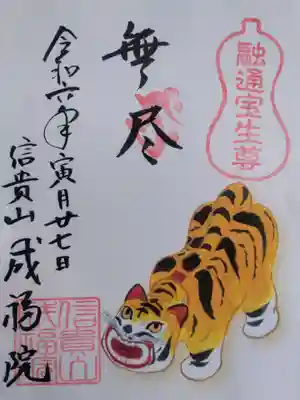 融通宝生尊
無尽
令和六年寅月廿七日
信貴山成福院
信貴山
成福院